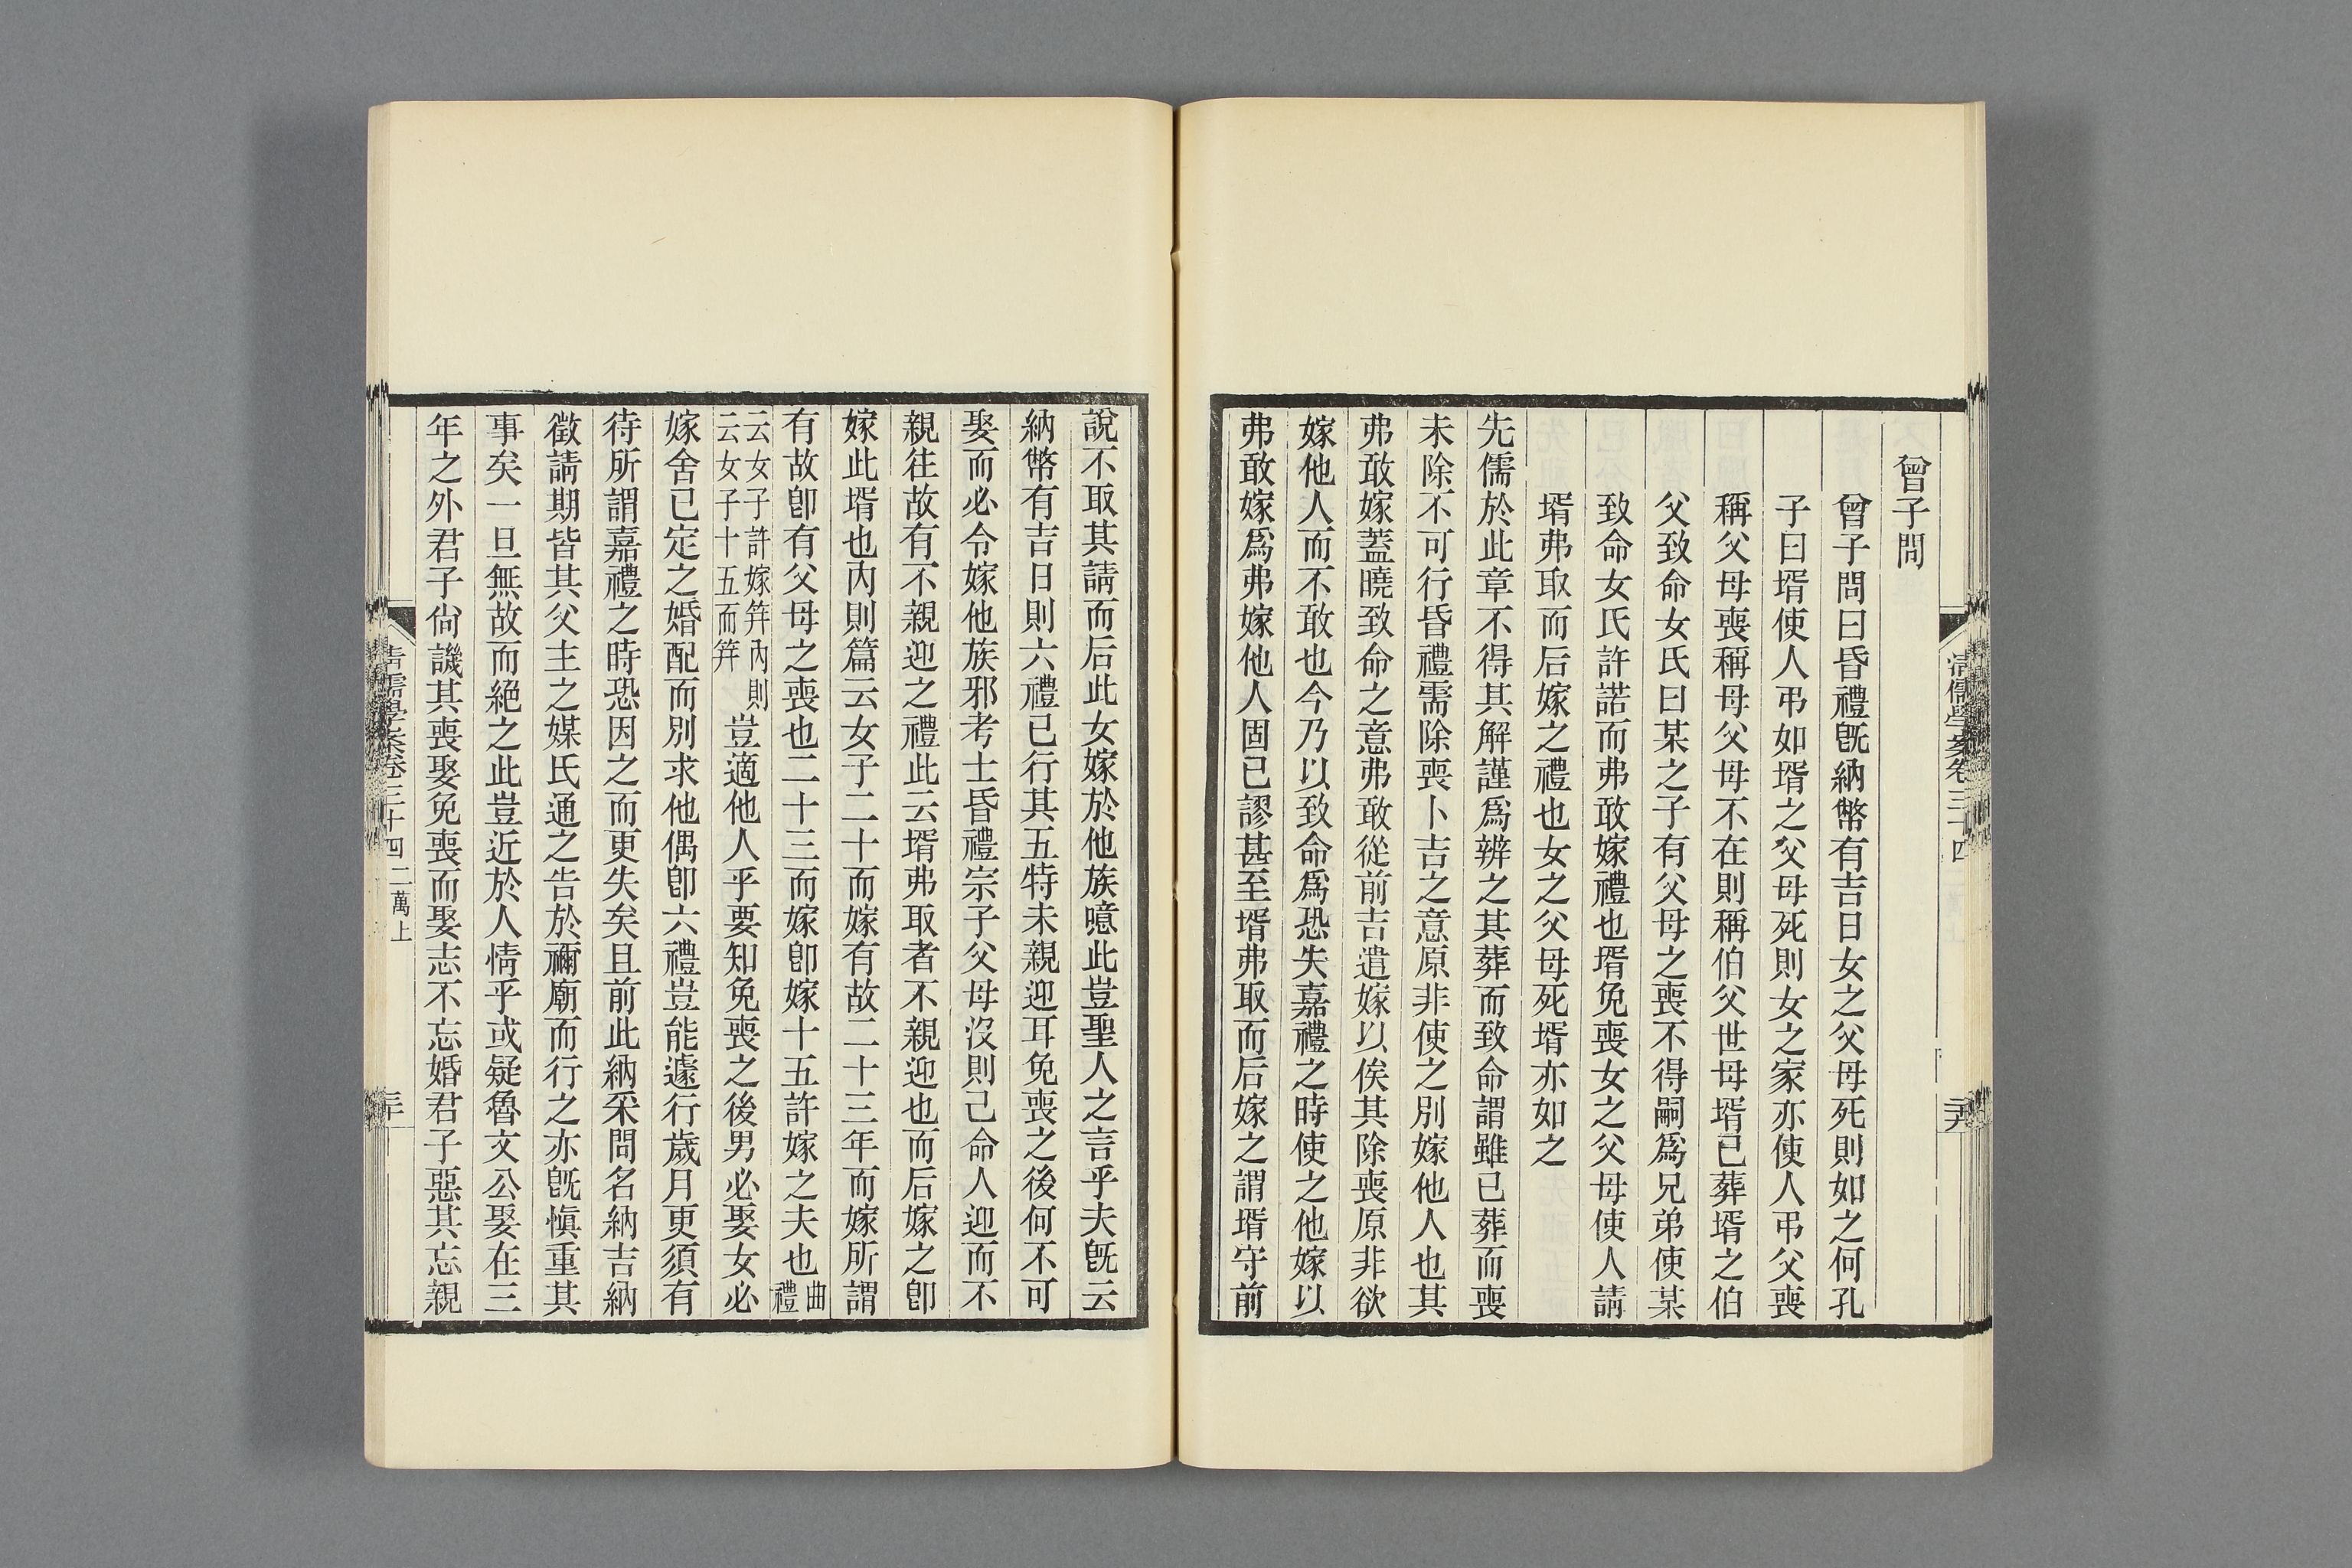 曾子問
曾子問曰昏禮旣納幣有吉日女之父母死則如之何孔
子曰壻使人弔如壻之父母死則女之家亦使人弔父喪
稱父母喪稱母父母不在則稱伯父世母壻已葬壻之伯
父致命女氏曰某之子有父母之喪不得嗣爲兄弟使某
致命女氏許諾而弗敢嫁禮也壻免喪女之父母使人請
壻弗取而后嫁之禮也女之父母死壻亦如之
先儒於此章不得其解謹爲辨之其葬而致命謂雖已葬而喪
未除不可行昏禮需除喪卜吉之意原非使之別嫁他人也其
弗敢嫁蓋曉致命之意弗敢從前吉遣嫁以俟其除喪原非欲
嫁他人而不敢也今乃以致命爲恐失嘉禮之時使之他嫁以
弗敢嫁爲弗嫁他人固已謬甚至壻弗取而后嫁之謂壻守前
清儒學案卷三十四
說不取其請而后此女嫁於他族噫此豈聖人之言乎夫旣云
納幣有吉日則六禮已行其五特未親迎耳免喪之後何不可
娶而必令嫁他族邪考士昏禮宗子父母沒則己命人迎而不
親往故有不親迎之禮此云壻弗取者不親迎也而后嫁之卽
嫁此壻也內則篇云女子二十而嫁有故二十三年而嫁所謂
有故卽有父母之喪也二十三而嫁卽嫁十五許嫁之夫也曲禮
云女子許嫁笄內則云女子十五而笄豈適他人乎要知免喪之後男必娶女必
嫁舍已定之婚配而別求他偶卽六禮豈能遽行歲月更須有
待所謂嘉禮之時恐因之而更失矣且前此納采問名納吉納
徵請期皆其父主之媒氏通之告於禰廟而行之亦旣愼重其
事矣一旦無故而絕之此豈近於人情乎或疑魯文公娶在三
年之外君子尙譏其喪娶免喪而娶志不忘婚君子惡其忘親
清儒學案卷三十四 二萬上